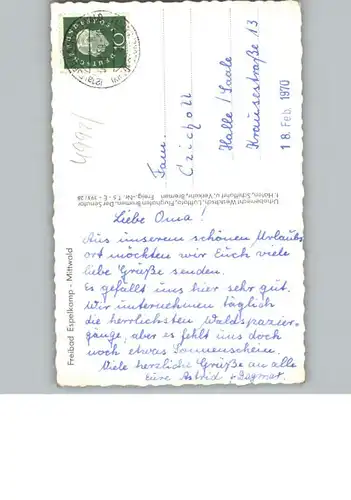 Liebe Oma!
Aus unserem schönen Urlaubs
ort möchten wir Euch viele
liebe Grüße senden.
Es gefällt uns hier sehr gut.
Wir unternehmen täglich
die herrlichsten Waldspazier-
gänge, aber es fehlt uns doch
noch etwas Sonnenschein.
Viele herzliche Grüße an alle
Eure Astrid + Dagmar.
Fam.
Czichon
Halle / Saale
Krausestraße 13
18. Feb. 1970
Freibad Espelkamp - Mittwald
10